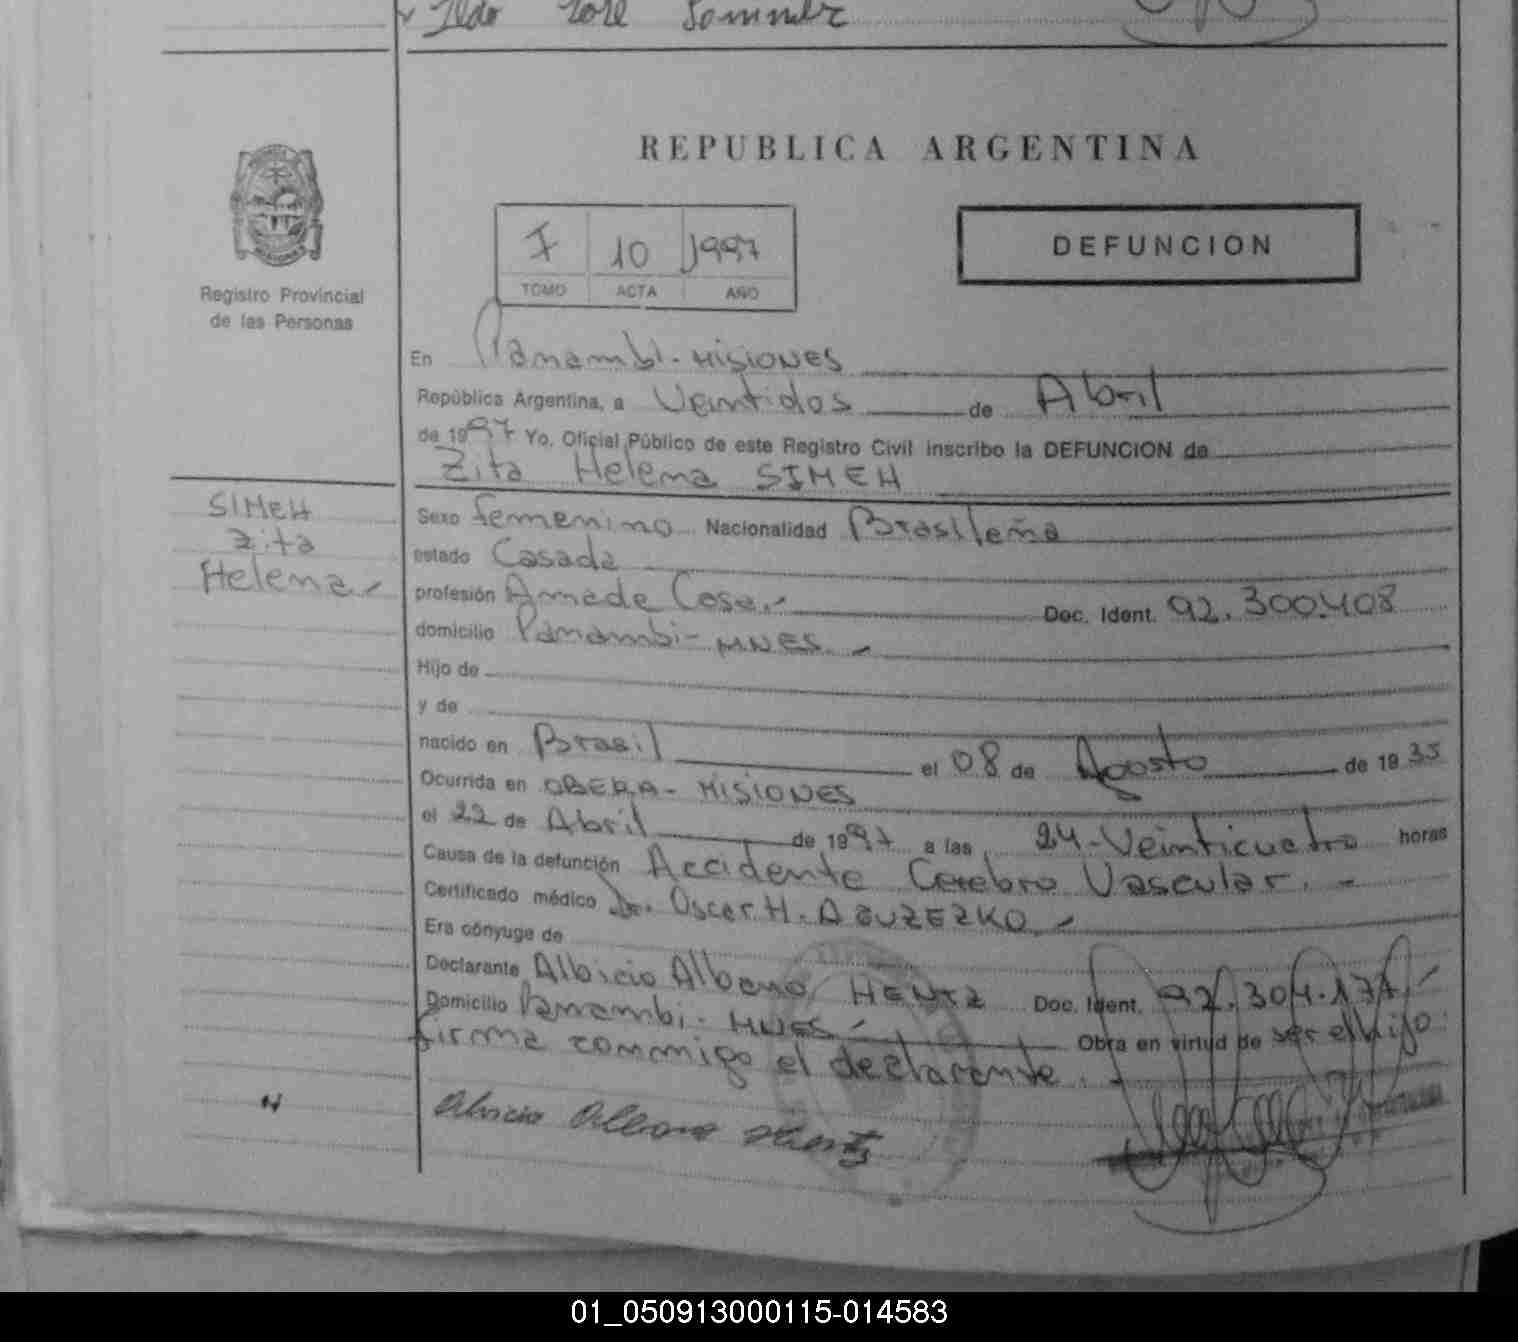 Ildo José Sommer
REPUBLICA ARGENTINA
I 10 1997
TOMO ACTA AÑO
DEFUNCION
Registro Provincial
de las Personas
En Panambi - MISIONES
República Argentina, a Veintidos de Abril
de 1997 Yo, Oficial Público de este Registro Civil inscribo la DEFUNCION de
Zita Helema SIMEH
SIMEH
Zita
Helema
Sexo femenino Nacionalidad Brasileña
estado Casada
profesión Ama de Casa.- Doc. Ident. 92.300.408
domicilio Panambi - MNES. -
Hijo de
y de
nacido en Brasil el 08 de Agosto de 1935
Ocurrida en OBERA - MISIONES
el 22 de Abril de 1997 a las 24-Veinticuatro horas
Causa de la defunción Accidente Cerebro Vascular. -
Certificado médico Dr. Oscar H. -
Era cónyuge de
Declarante Albicio Albano HENTZ Doc. Ident. 92.304.177 -
Domicilio Panambi - MNES - Obra en virtud de ser el hijo
firma commigo el declarante. -
Alvicio Albano Hentz
01_050913000115-014583